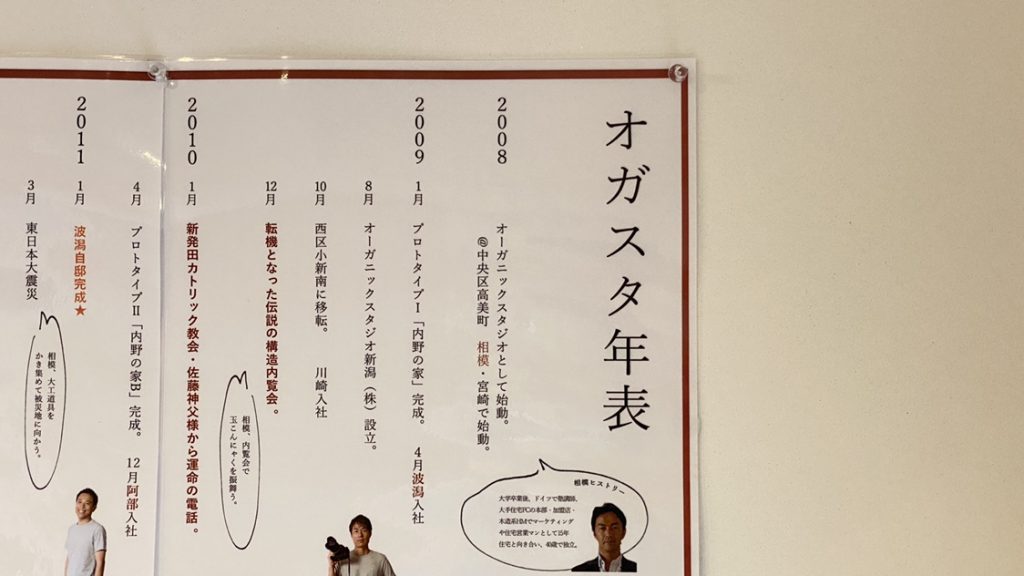 オガスタ年表
2008
オーガニックスタジオとして始動。
@中央区高美町 相模・宮崎で始動。
相模ヒストリー
大学卒業後、ドイツで塾講師、
大手住宅FCの本部・加盟店・
木造系HMでマーケティング
や住宅営業マンとして15年
住宅と向き合い、40歳で独立。
2009 1月 プロトタイプⅠ「内野の家」完成。 4月波潟入社
8月 オーガニックスタジオ新潟(株)設立。
10月 西区小新南に移転。 川崎入社
12月 転機となった伝説の構造内覧会。
相模、内覧会で
玉こんにゃくを振舞う。
2010 1月 新発田カトリック教会・佐藤神父様から運命の電話。
4月 プロトタイプⅡ「内野の家B」完成。 12月阿部入社
2011 1月 波潟自邸完成★
3月 東日本大震災
相模、大工道具を
かき集めて被災地に向かう。